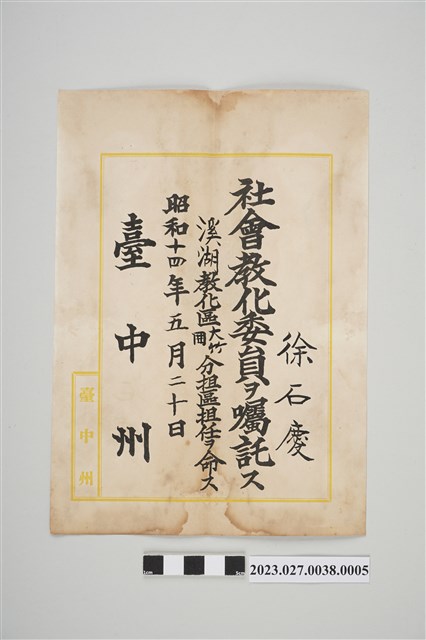 徐石慶
社會教化委員ヲ囑託ス
溪湖教化區大竹冊分担區担任ヲ命ス
昭和十四年五月二十日
臺中州
臺中州
1cm 5cm
2023.027.0038.0005